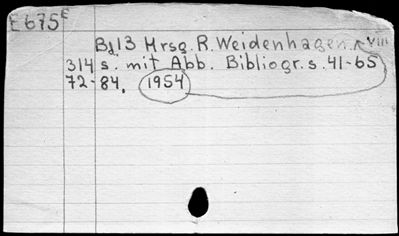 E 675 E
Bd 13 Hrsg. R. Weidenhagen. VIII
314 s. mit Abb. Bibliogr. s. 41-65
72-84. 1954